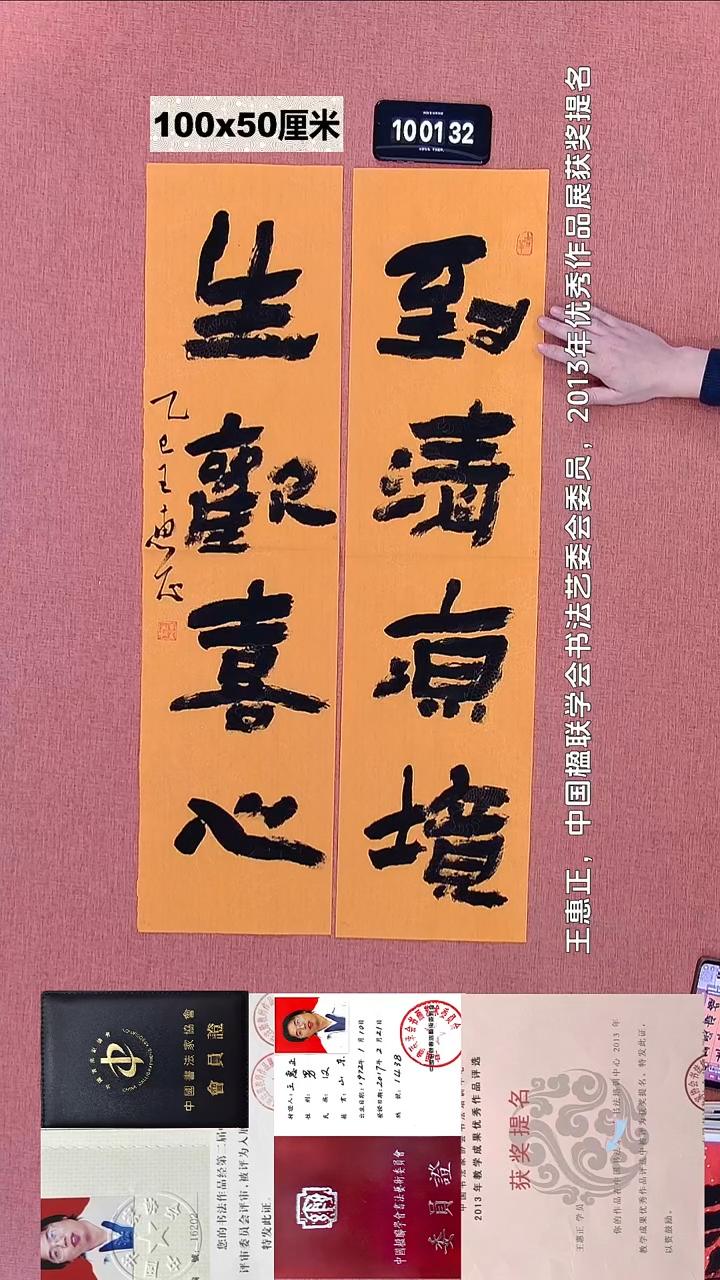 100x50厘米
10 01 32
到清凉境
生歡喜心
乙巳王惠正
王惠正，中国楹联学会书法艺委会委员，2013年优秀作品展获奖提名
中國書法家協會
會員證
號 16202
您的书法作品经第二届
评审委员会评审，被评为入
特发此证。
持证人：王惠正
性别：男
民族：汉
籍贯：山东
出生日期：1972年1月10日
发证日期：2017年2月21日
编号：1438
中國楹聯學會書法藝術委員會
委員證
2013年教学成果优秀作品评选
获奖提名
王惠正 学员
教学成果优秀作品评选中被评为获奖提名，特发此证，
以资鼓励。